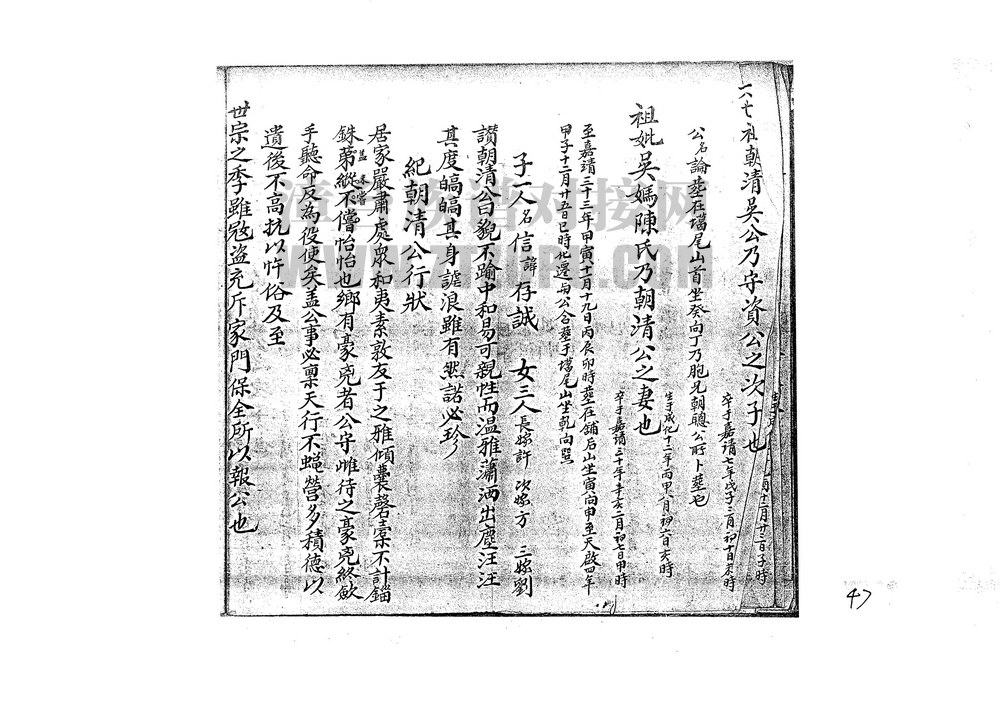 六七祖朝清吳公乃守資公之次子也
月十二日廿二日子時
卒于嘉靖七年戊子二月初十日未時
公名論塟在壋尾山首坐癸向丁乃胞兄朝聰公所卜塟也
祖妣吳媽陳氏乃朝清公之妻也
生于成化十二年丙申八月初六日亥時
卒于嘉靖三十年辛亥二月初七日甲時
至嘉靖三十三年甲寅十二月十九日丙辰卯時塟在鋪后山坐寅向申至天啟四年
甲子十二月廿五日巳時化遷與公合塟于壋尾山坐乾向巽
子一人名信諱存誠 女三人長嫁許 次嫁方 三嫁劉
讃朝清公曰貌不踰中和易可親性而温雅瀟洒出塵汪汪
其度皜皜其身謔浪雖有然諾必珍
紀朝清公行狀
居家嚴肅處眾和夷素敦友于之雅傾囊磬橐不計錙
銖蓋弟縱不僧怡怡也鄉有豪兇者公守雌待之豪兇終歛
手聽命反為役使矣盖公事必禀天行不蝇營多積德以
遺後不高抗以忤俗及至
世宗之季雖寇盜充斥家門保全所以報公也
漳台族谱对接网
47